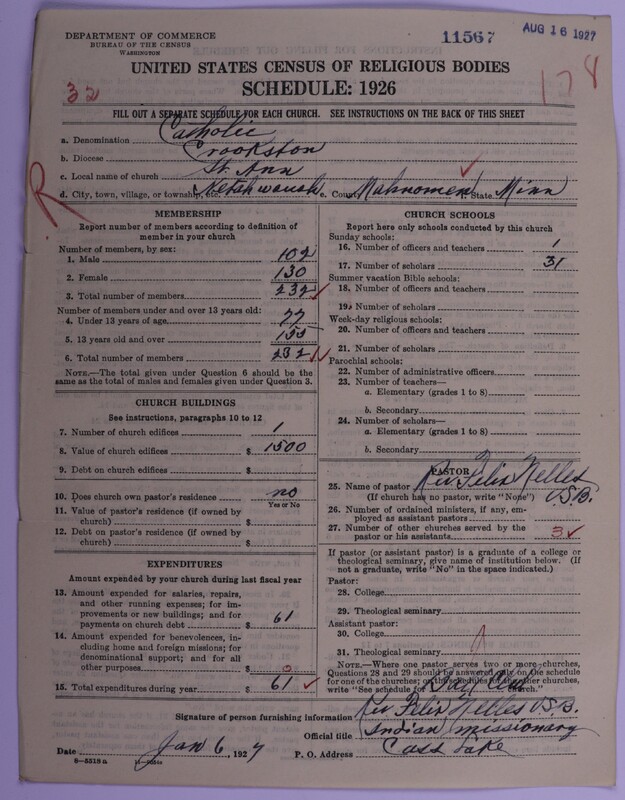 DEPARTMENT OF COMMERCE
BUREAU OF THE CENSUS
WASHINGTON
11567
AUG 16 1927
UNITED STATES CENSUS OF RELIGIOUS BODIES
SCHEDULE: 1926
32
178
FILL OUT A SEPARATE SCHEDULE FOR EACH CHURCH. SEE INSTRUCTIONS ON THE BACK OF THIS SHEET
a. Denomination Catholic
b. Diocese Crookston
c. Local name of church St. Ann
d. City, town, village, or township, etc. e. County Mahnomen f. State Minn
R
MEMBERSHIP
Report number of members according to definition of
member in your church
Number of members, by sex:
1. Male 102
2. Female 130
3. Total number of members 232
Number of members under and over 13 years old:
4. Under 13 years of age 77
5. 13 years old and over 155
6. Total number of members 232
NOTE.—The total given under Question 6 should be
same as the total of males and females given under Question 3.
CHURCH BUILDINGS
See instructions, paragraphs 10 to 12
7. Number of church edifices 1
8. Value of church edifices $ 1500
9. Debt on church edifices $
10. Does church own pastor's residence no
Yes or No
11. Value of pastor's residence (if owned by
church) $
12. Debt on pastor's residence (if owned by
church) $
EXPENDITURES
Amount expended by your church during last fiscal year
13. Amount expended for salaries, repairs,
and other running expenses; for im-
provements or new buildings; and for
payments on church debt $ 61
14. Amount expended for benevolences, in-
cluding home and foreign missions; for
denominational support; and for all
other purposes $ 0
15. Total expenditures during year $ 61
CHURCH SCHOOLS
Report here only schools conducted by this church
Sunday schools:
16. Number of officers and teachers 1
17. Number of scholars 31
Summer vacation Bible schools:
18. Number of officers and teachers
19. Number of scholars
Week-day religious schools:
20. Number of officers and teachers
21. Number of scholars
Parochial schools:
22. Number of administrative officers
23. Number of teachers—
a. Elementary (grades 1 to 8)
b. Secondary
24. Number of scholars—
a. Elementary (grades 1 to 8)
b. Secondary
PASTOR
25. Name of pastor Rev Felix Nelles
(If church has no pastor, write "None") O.S.B.
26. Number of ordained ministers, if any, em-
ployed as assistant pastors
27. Number of other churches served by the
pastor or his assistants 3
If pastor (or assistant pastor) is a graduate of a college or
theological seminary, give name of institution below. (If
not a graduate, write "No" in the space indicated.)
Pastor:
28. College
29. Theological seminary
Assistant pastor:
30. College
31. Theological seminary
NOTE.—Where one pastor serves two or more churches,
Questions 28 and 29 should be answered only on the schedule
for one of the churches; on the schedules for the other churches,
write "See schedule for church."
Signature of person furnishing information Rev Felix Nelles O.S.B.
Official title Indian missionary
Date Jan 6, 1927 P. O. Address Cass Lake
8—5318 a